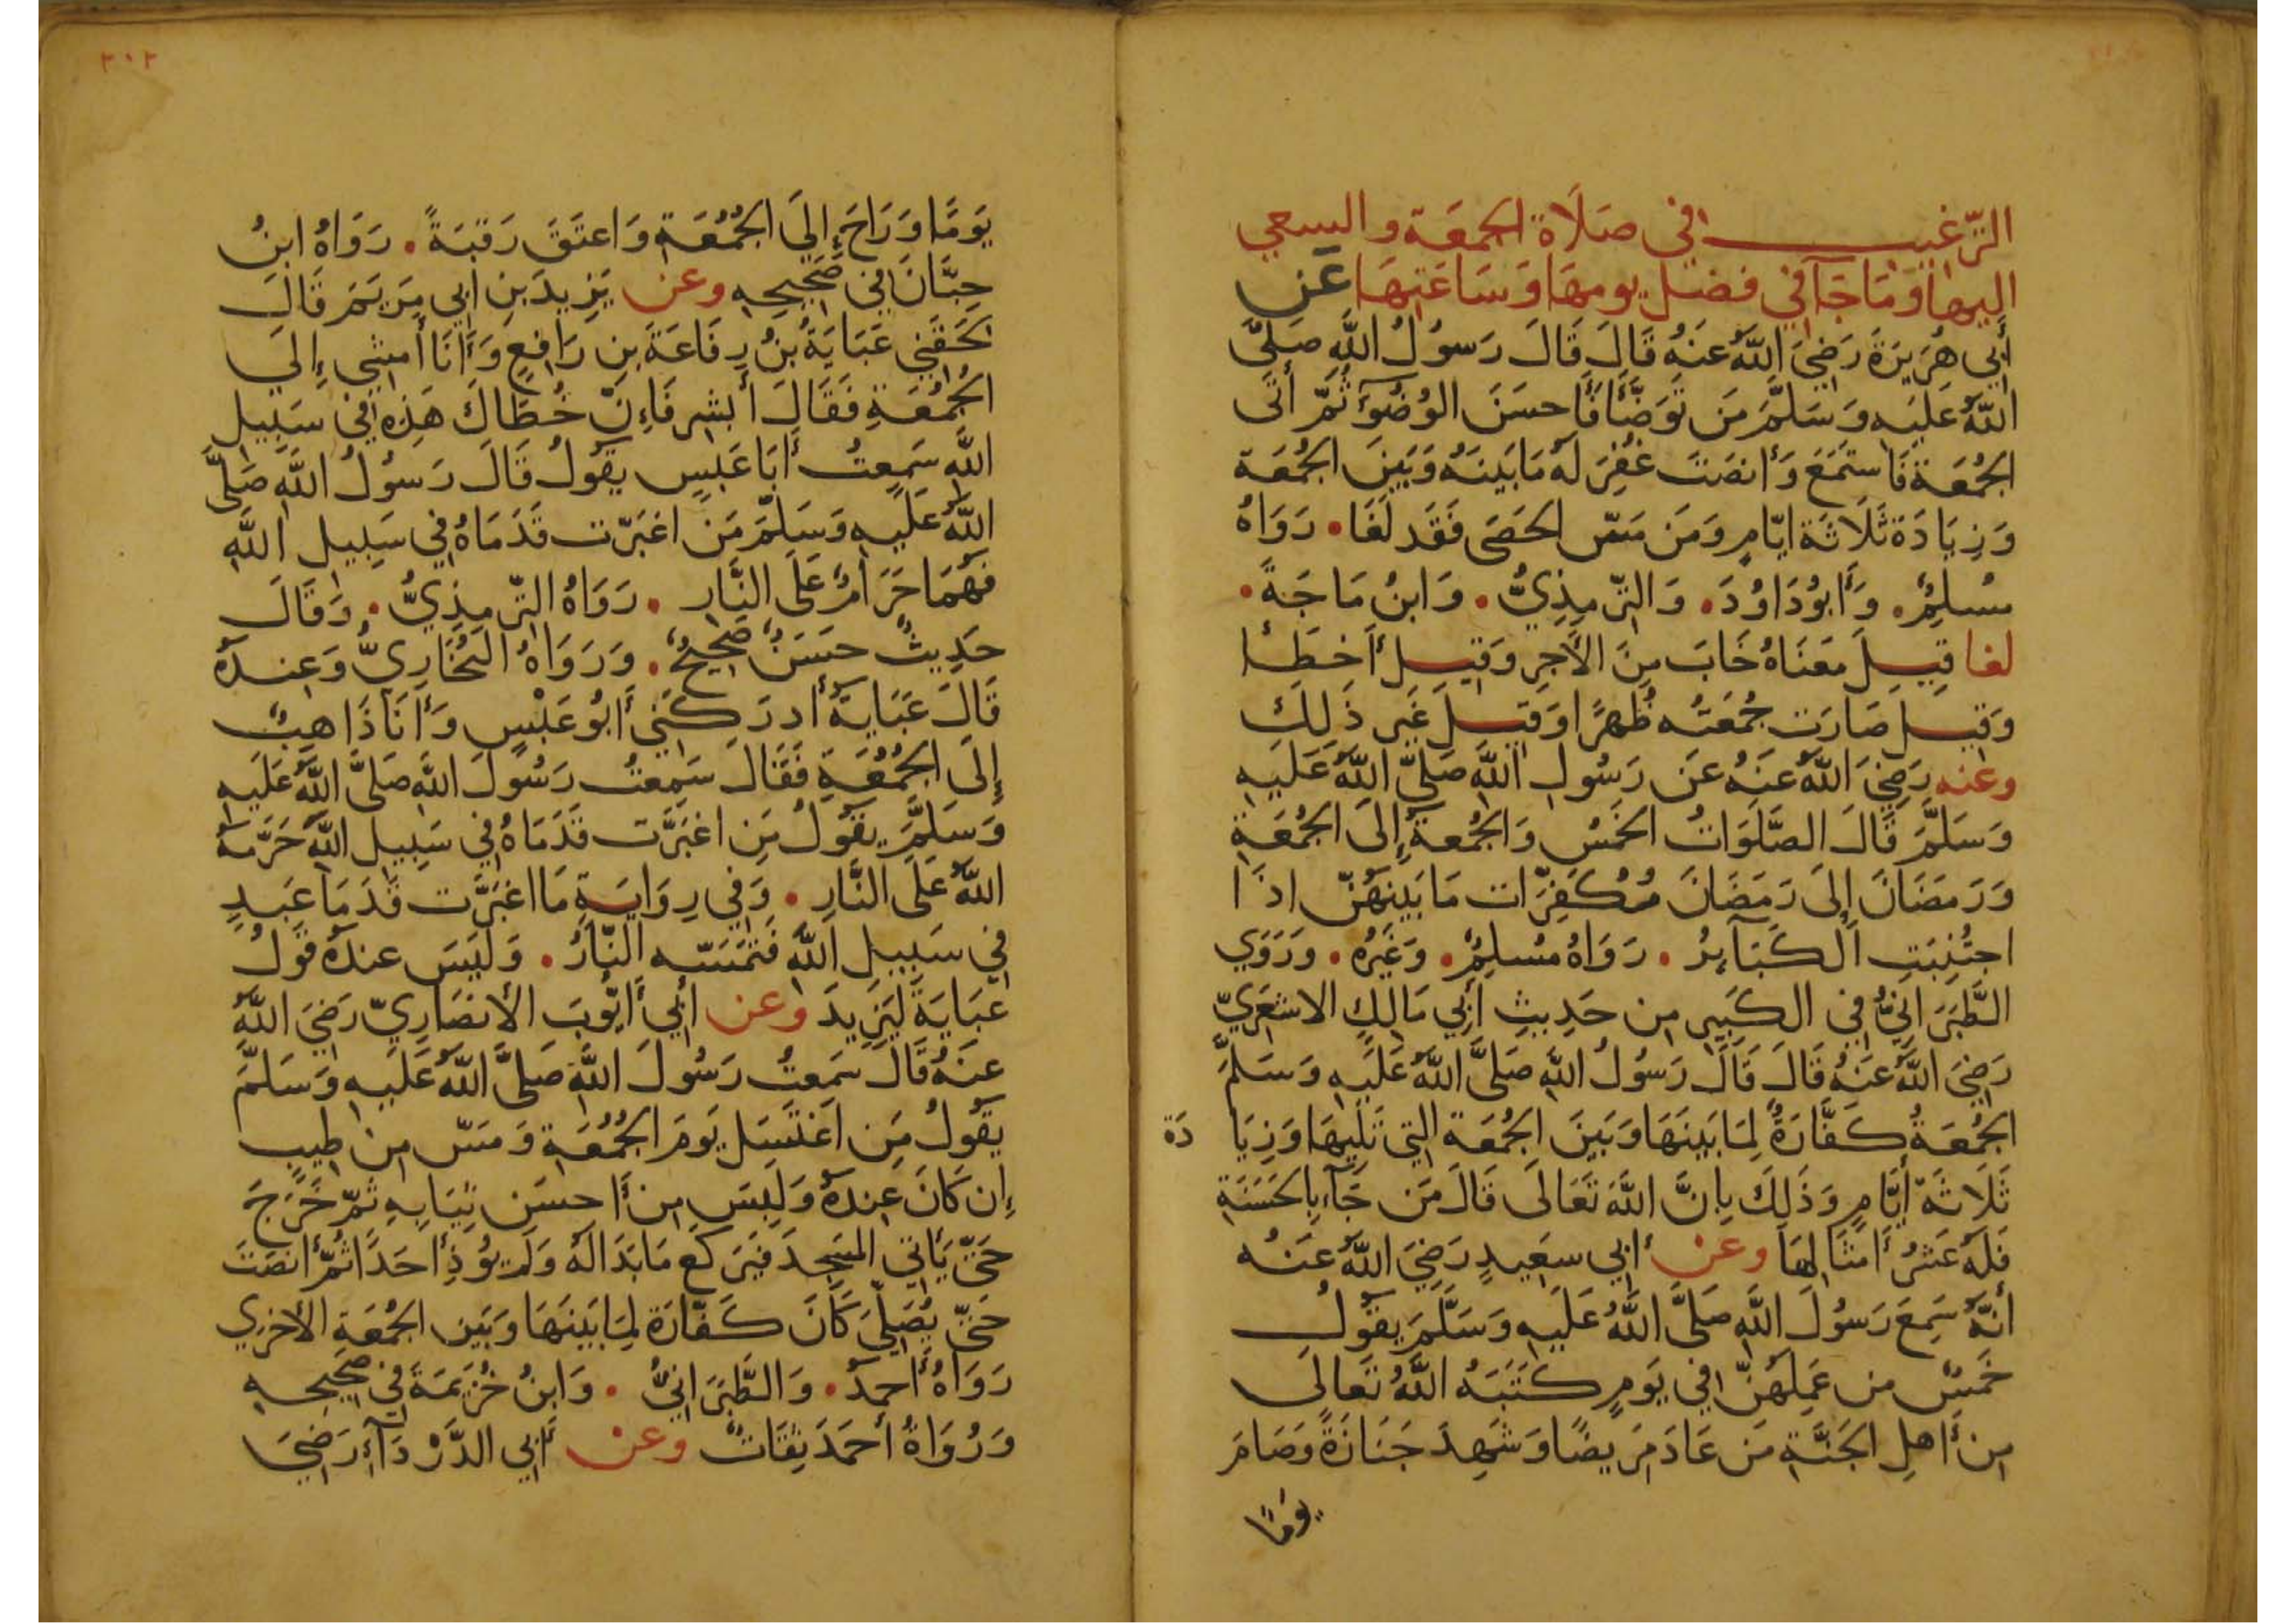 الترغيب في صلاة الجمعة والسعي
اليها وَمَا جَآ في فضل يومهَا وَسَاعَتِهَا عَن
أَبي هُرَيرَةَ رَضِيَ اللَّهُ عَنهُ قَالَ قَالَ رَسُولُ اللَّهِ صَلَّى
اللَّهُ عَلَيهِ وَسَلَّمَ مَن تَوَضَّأَ فَأَحسَنَ الوُضُوءَ ثُمَّ أَتَى
الجُمُعَةَ فَاستَمَعَ وَأَنصَتَ غُفِرَ لَهُ مَا بَينَهُ وَبَينَ الجُمُعَة
وَزِيَادَة ثَلَاثَة ايّامٍ وَمَن مَسّ الحَصَى فَقَد لَغَا. رَوَاهُ
مُسلِمٌ. وَأَبُو دَاوُدَ. وَالتّرمِذِيُّ. وَابنُ مَاجَةَ.
لغا قِيلَ مَعنَاهُ خَابَ مِنَ الأَجرِ وَقِيلَ أَخطَا
وَقيل صَارَت جُمعَتُه ظُهرًا وَقيلَ غَير ذَلِكَ
وعنه رَضِيَ اللَّهُ عَنهُ عَن رَسُولِ اللَّهِ صَلَّى اللَّهُ عَلَيهِ
وَسَلَّمَ قَالَ الصَّلَوَاتُ الخَمسُ وَالجُمعَةُ إِلَى الجُمُعَةِ
وَرَمَضَانَ إِلَى رَمَضَانَ مُكَفِّرَات مَا بَينَهُنّ اذَا
اجتُنِبَتِ الكَبَآيِرُ. رَوَاهُ مُسلِمٌ. وَغَيرُه. وَرَوَي
الطَّبَرَانِيُّ في الكَبيرِ من حَدِيثِ أَبِي مَالِكٍ الاشعَرِيّ
رَضِيَ اللَّهُ عَنهُ قَالَ قَالَ رَسُولُ اللَّهِ صَلَّى اللَّهُ عَلَيهِ وَسَلَّمَ
الجُمُعَةُ كَفَّارَةٌ لِمَا بَينَهَا وَبَينَ الجُمُعَةِ التي تَلِيهَا وَزِيَا دَة
ثَلَاثَةِ أَيَّامٍ وَذَلِكَ بِانَّ اللَّهَ تَعَالَى قَالَ مَن جَآءَ بِالحَسَنَةِ
فَلَهُ عَشرُ أَمثَالِهَا وعن أَبي سَعِيدٍ رَضِيَ اللَّهُ عَنهُ
أَنَّهُ سَمِعَ رَسُولَ اللَّهِ صَلَّى اللَّهُ عَلَيهِ وَسَلَّمَ يَقُولُ
خَمسٌ من عَمِلَهُنّ في يَومٍ كَتَبَهُ اللَّهُ تَعَالَى
مِن أَهلِ الجَنَّةِ مَن عَادَ مَرِيضًا وَشَهِدَ جَنَازَةً وَصَامَ
يومًا
٣١٢
يَومًا وَرَاحَ إِلَى الجُمُعَةِ وَاعتَقَ رَقبَةً. رَوَاهُ ابنُ
حِبَّانَ فِي صَحِيحِهِ وعن يَزِيدَ بنِ ابِي مَريَمَ قَالَ
لَحِقَنِي عَبَايَةُ بنُ رِفَاعَةَ بنِ رَافِعٍ وَأَنَا أَمشِي إِلَى
الجُمُعَةِ فَقَالَ أَبشِر فَإِنّ خُطَاكَ هَذِه في سَبِيلِ
اللَّهِ سَمِعتُ أَبَا عَبسٍ يَقُولُ قَالَ رَسُولُ اللَّهِ صَلَّى
اللَّهُ عَلَيهِ وَسَلَّمَ مَن اغبَرّت قَدَمَاهُ فِي سَبِيلِ اللَّهِ
فَهُمَا حَرَامٌ عَلَى النَّارِ. رَوَاهُ التّرمِذِيُّ. وَقَالَ
حَدِيثٌ حَسَنٌ صَحِيحٌ. وَرَوَاهُ البُخَارِيُّ وَعِندَهُ
قَالَ عَبَايَةُ أَدرَكَنِي أَبُو عَبْسٍ وَأَنَا ذَاهِبٌ
إِلَى الجُمُعَةِ فَقَالَ سَمِعتُ رَسُولَ اللَّهِ صَلَّى اللَّهُ عَلَيهِ
وَسَلَّمَ يَقُولُ مَنِ اغبَرَّت قَدَمَاهُ فِي سَبِيلِ اللَّهِ حَرَّمَهُ
اللَّهُ عَلَى النَّارِ. وَفِي رِوَايَةِ مَا اغبَرَّت قَدَمَا عَبدٍ
فِي سَبِيلِ اللَّهِ فَتَمَسّه النّارُ. وَلَيسَ عندَهُ قَولُ
عَبَايَةَ لِيَزِيدَ وعن أَبِي أَيُّوبَ الأَنصَارِيّ رَضِيَ اللَّهُ
عَنهُ قَالَ سَمِعتُ رَسُولَ اللَّهِ صَلَّى اللَّهُ عَلَيهِ وَسَلَّمَ
يَقُولُ مَنِ اغتَسَل يَومَ الجُمُعَةِ وَمَسّ مِن طِيبٍ
إِن كَانَ عِندَهُ وَلَبِسَ مِن أَحسَنِ ثِيَابِهِ ثمّ خَرَجَ
حَتّى يَأتي المَسجِدَ فَيَركَع مَا بَدَا لَهُ وَلَم يُوذِ أَحَدًا ثُمّ أَنصَتَ
حَتّى يُصَلِّيَ كَانَ كَفّارَة لِمَا بَينَهَا وَبَينَ الجُمعَةِ الأُخرِي
رَوَاهُ أَحمَدُ. وَالطَّبَرَانِيُّ. وَابنُ خُزَيمَةَ فِي صَحِيحِهِ
وَرُوَاةُ أَحمَدَ ثِقَاتٌ وعن أَبِي الدَّرْدَآءِ رَضِيَ